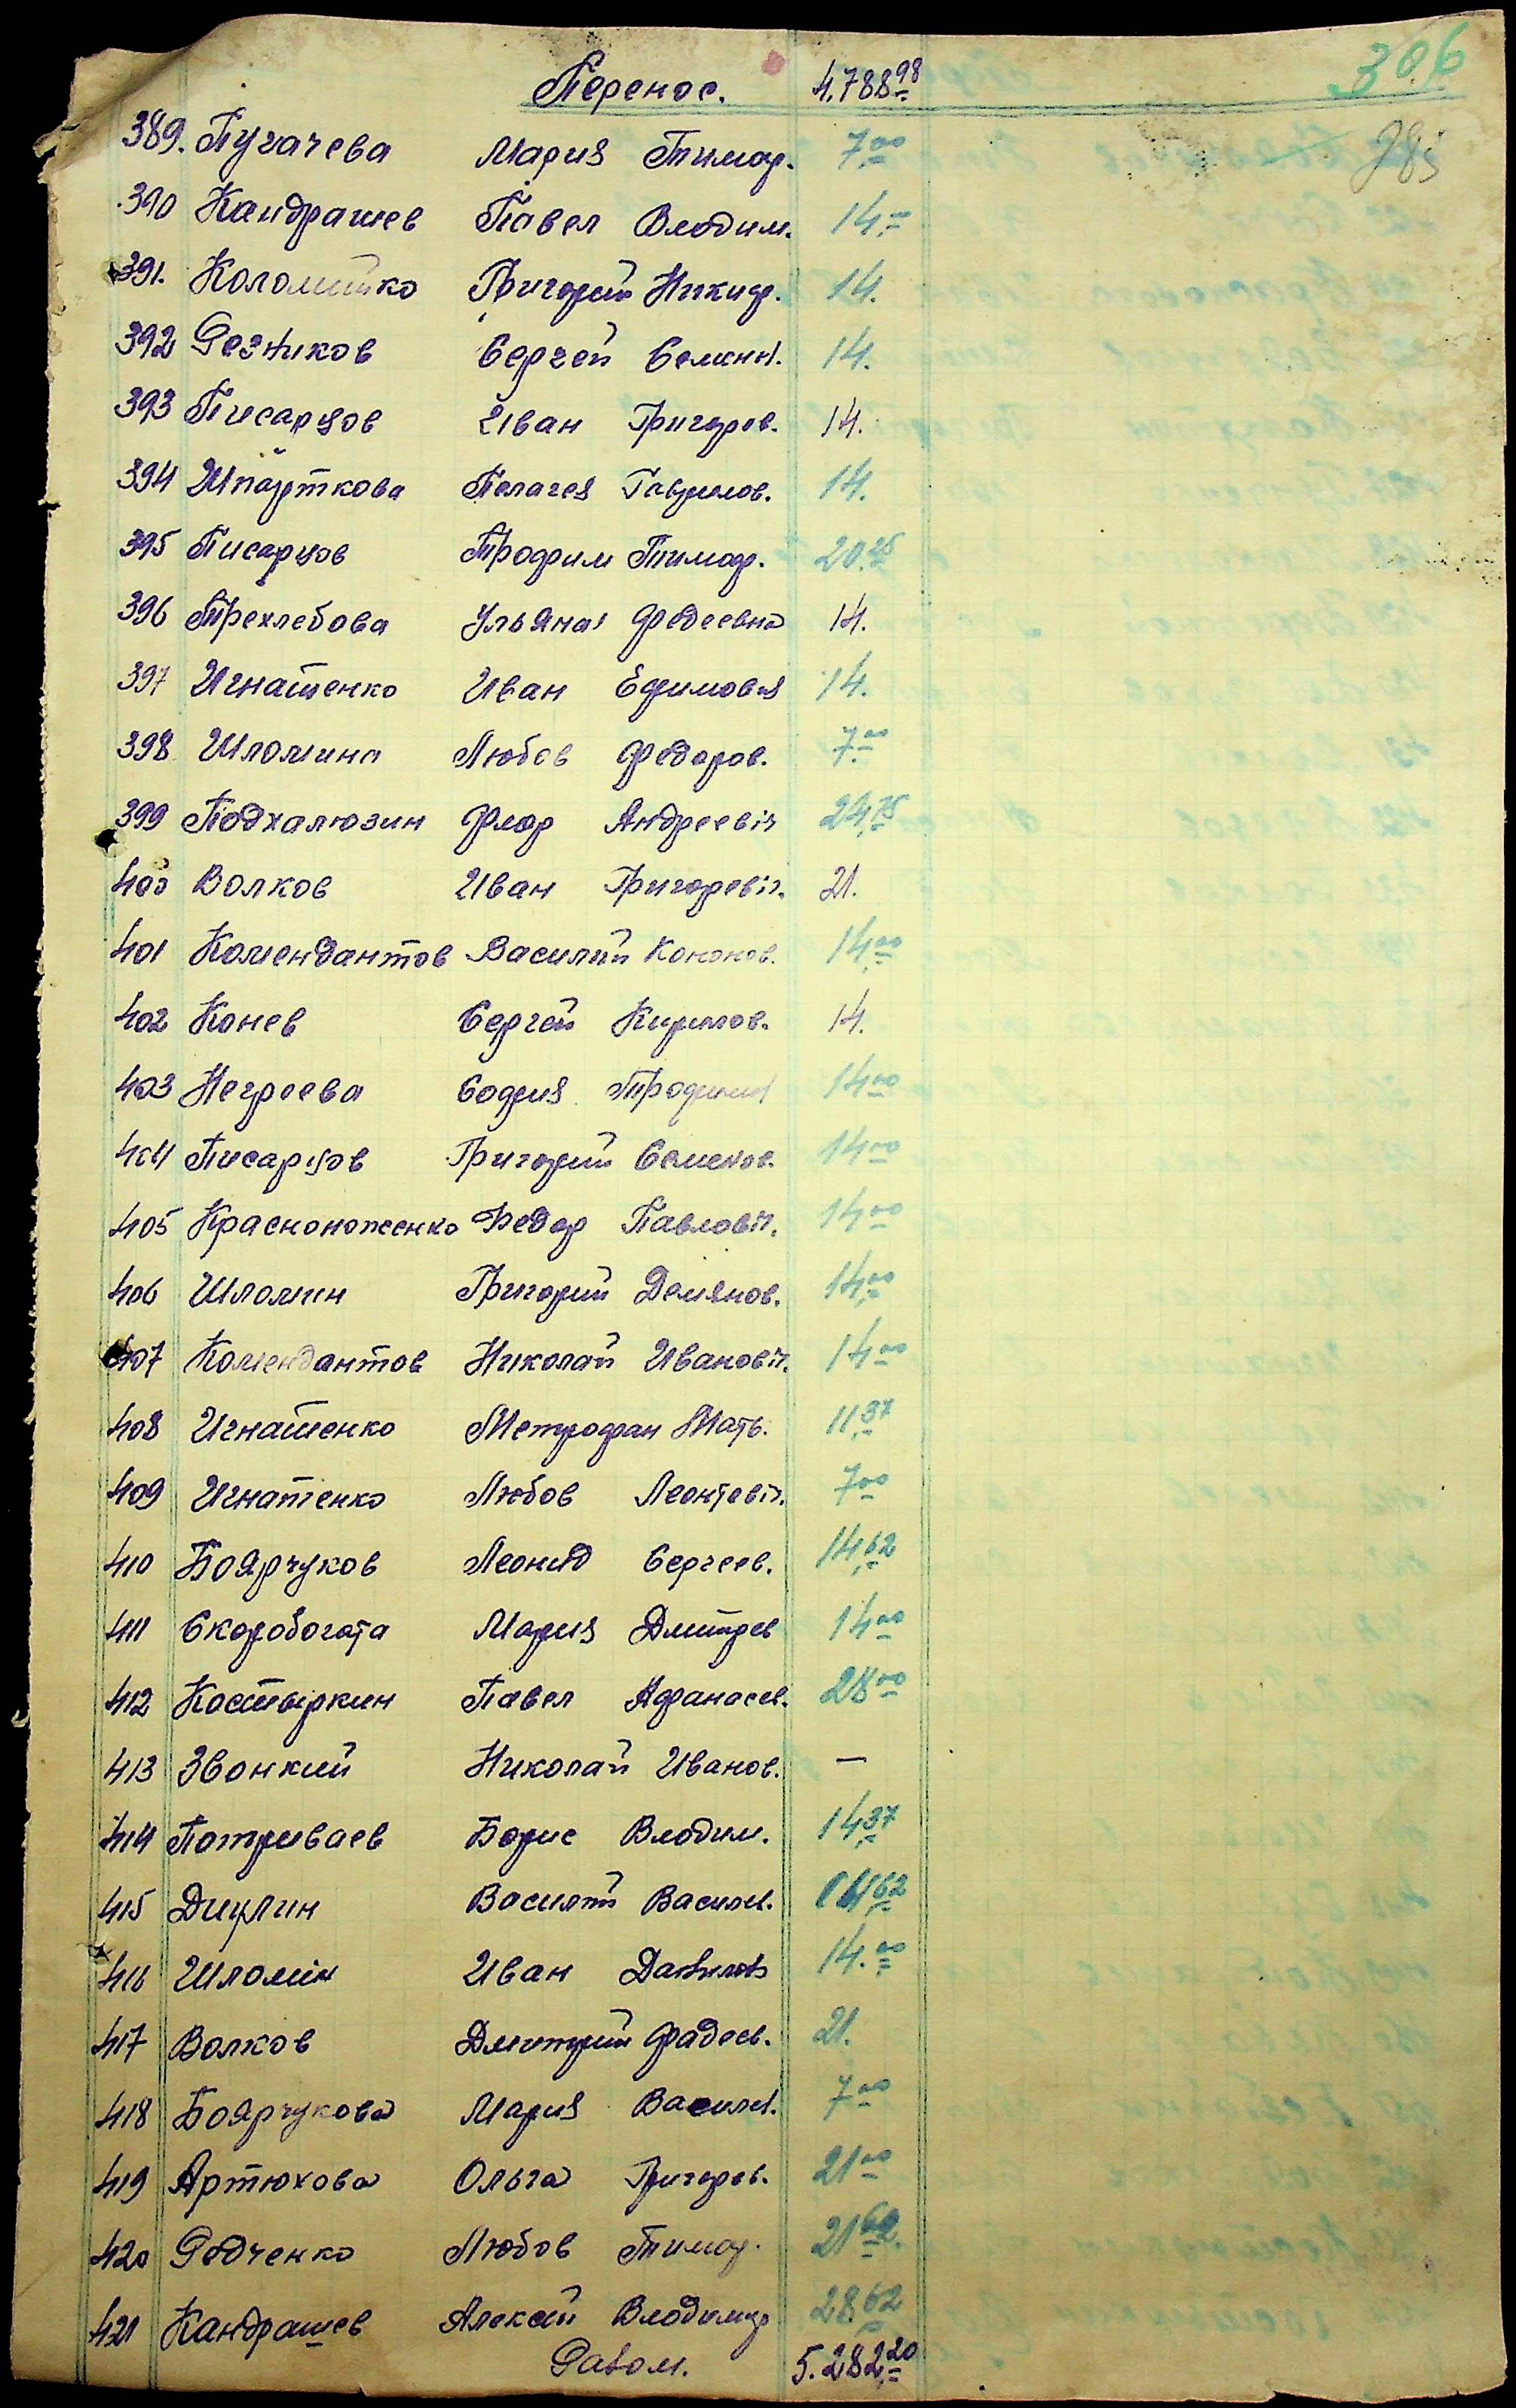 306
Перенос. 4.788.98
285
389. Пугачева Мария Тимоф. 7.00
390 Кандрашев Павел Владим. 14.=
391. Коломийко Григорий Никиф. 14.
392 Резников Сергей Семен. 14.
393 Писарцов Иван Григоров. 14.
394 Шпарткова Пелагея Гаврилов. 14.
395 Писарцов Трофим Тимоф. 20.25
396 Трехлебова Ульяна Федеевна 14.
397 Игнатенко Иван Ефимовя 14.
398 Шломина Любов Федоров. 7.00
399 Подхалюзин Флор Андреевіч 24.75
400 Волков Иван Григоревіч. 21.
401 Комендантов Василий Кононов. 14.00
402 Конев Сергей Кирилов. 14.
403 Негреева София Трофим 14.00
404 Писарцов Григорий Семенов. 14.00
405 Красноноженко Федор Павловіч. 14.00
406 Шломин Григорий Демянов. 14.00
407 Комендантов Николай Ивановіч. 14.00
408 Игнатенко Метрофан Матв. 11.37
409 Игнатенко Любов Леонтевіч. 7.00
410 Боярчуков Леонид Сергеев. 14.62
411 Скоробогата Мария Дмитрев 14.00
412 Костыркин Павел Афанасев. 28.00
413 Звонкий Николай Иванов. —
414 Потриваев Борис Владим. 14.37
415 Дицлин Василий Василев.
416 Шломін Иван 14.00
417 Волков Дмитрий Фадеев. 21.
418 Боярчукова Мария Василев. 7.00
419 Артюхова Ольга Григорев. 21.00
420 Родченко Любов Тимоф. 21.62
421 Кандрашев Алексей Владимир 28.62
Разом. 5.282.20